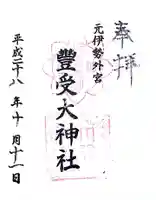 奉拝
元伊勢外宮
豐受大神社
平成二十八年十月十二日